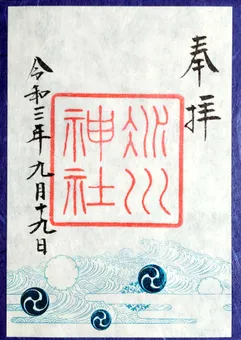 奉拝
氷川
神社
令和三年九月十九日